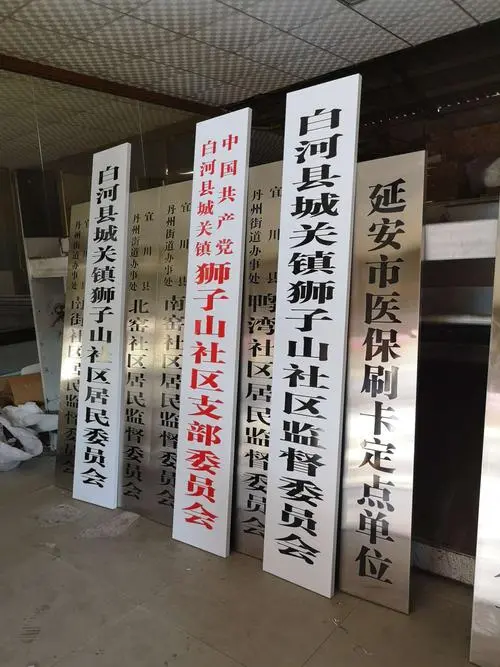 宜川县
丹州街道办事处
南街社区居民监督委员会
白河县城关镇狮子山社区居民委员会
宜川县
丹州街道办事处
北窑社区居民监督委员会
宜川县
丹州街道办事处
南窑社区居民监督委员会
中国共产党
白河县城关镇
狮子山社区支部委员会
宜川县
丹州街道办事处
湾社区居民监督委员会
白河县城关镇狮子山社区监督委员会
延安市医保刷卡定点单位